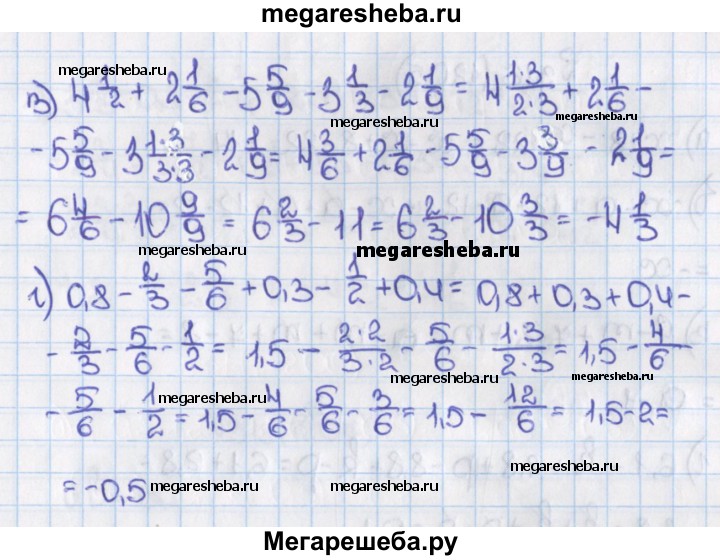 megaresheba.ru
megaresheba.ru
в) 4 1/2 + 2 1/6 - 5 5/9 - 3 1/3 - 2 1/9 = 4 1·3/2·3 + 2 1/6 -
megaresheba.ru
megaresheba.ru
- 5 5/9 - 3 1·3/3·3 - 2 1/9 = 4 3/6 + 2 1/6 - 5 5/9 - 3 3/9 - 2 1/9 =
= 6 4/6 - 10 9/9 = 6 2/3 - 11 = 6 2/3 - 10 3/3 = - 4 1/3
megaresheba.ru
megaresheba.ru
г) 0,8 - 2/3 - 5/6 + 0,3 - 1/2 + 0,4 = 0,8 + 0,3 + 0,4 -
- 2/3 - 5/6 - 1/2 = 1,5 - 2·2/3·2 - 5/6 - 1·3/2·3 = 1,5 - 4/6 -
megaresheba.ru
megaresheba.ru
- 5/6 - 1/2 = 1,5 - 4/6 - 5/6 - 3/6 = 1,5 - 12/6 = 1,5 - 2 =
megaresheba.ru
= - 0,5
megaresheba.ru
megaresheba.ru
Мегарешеба.ру